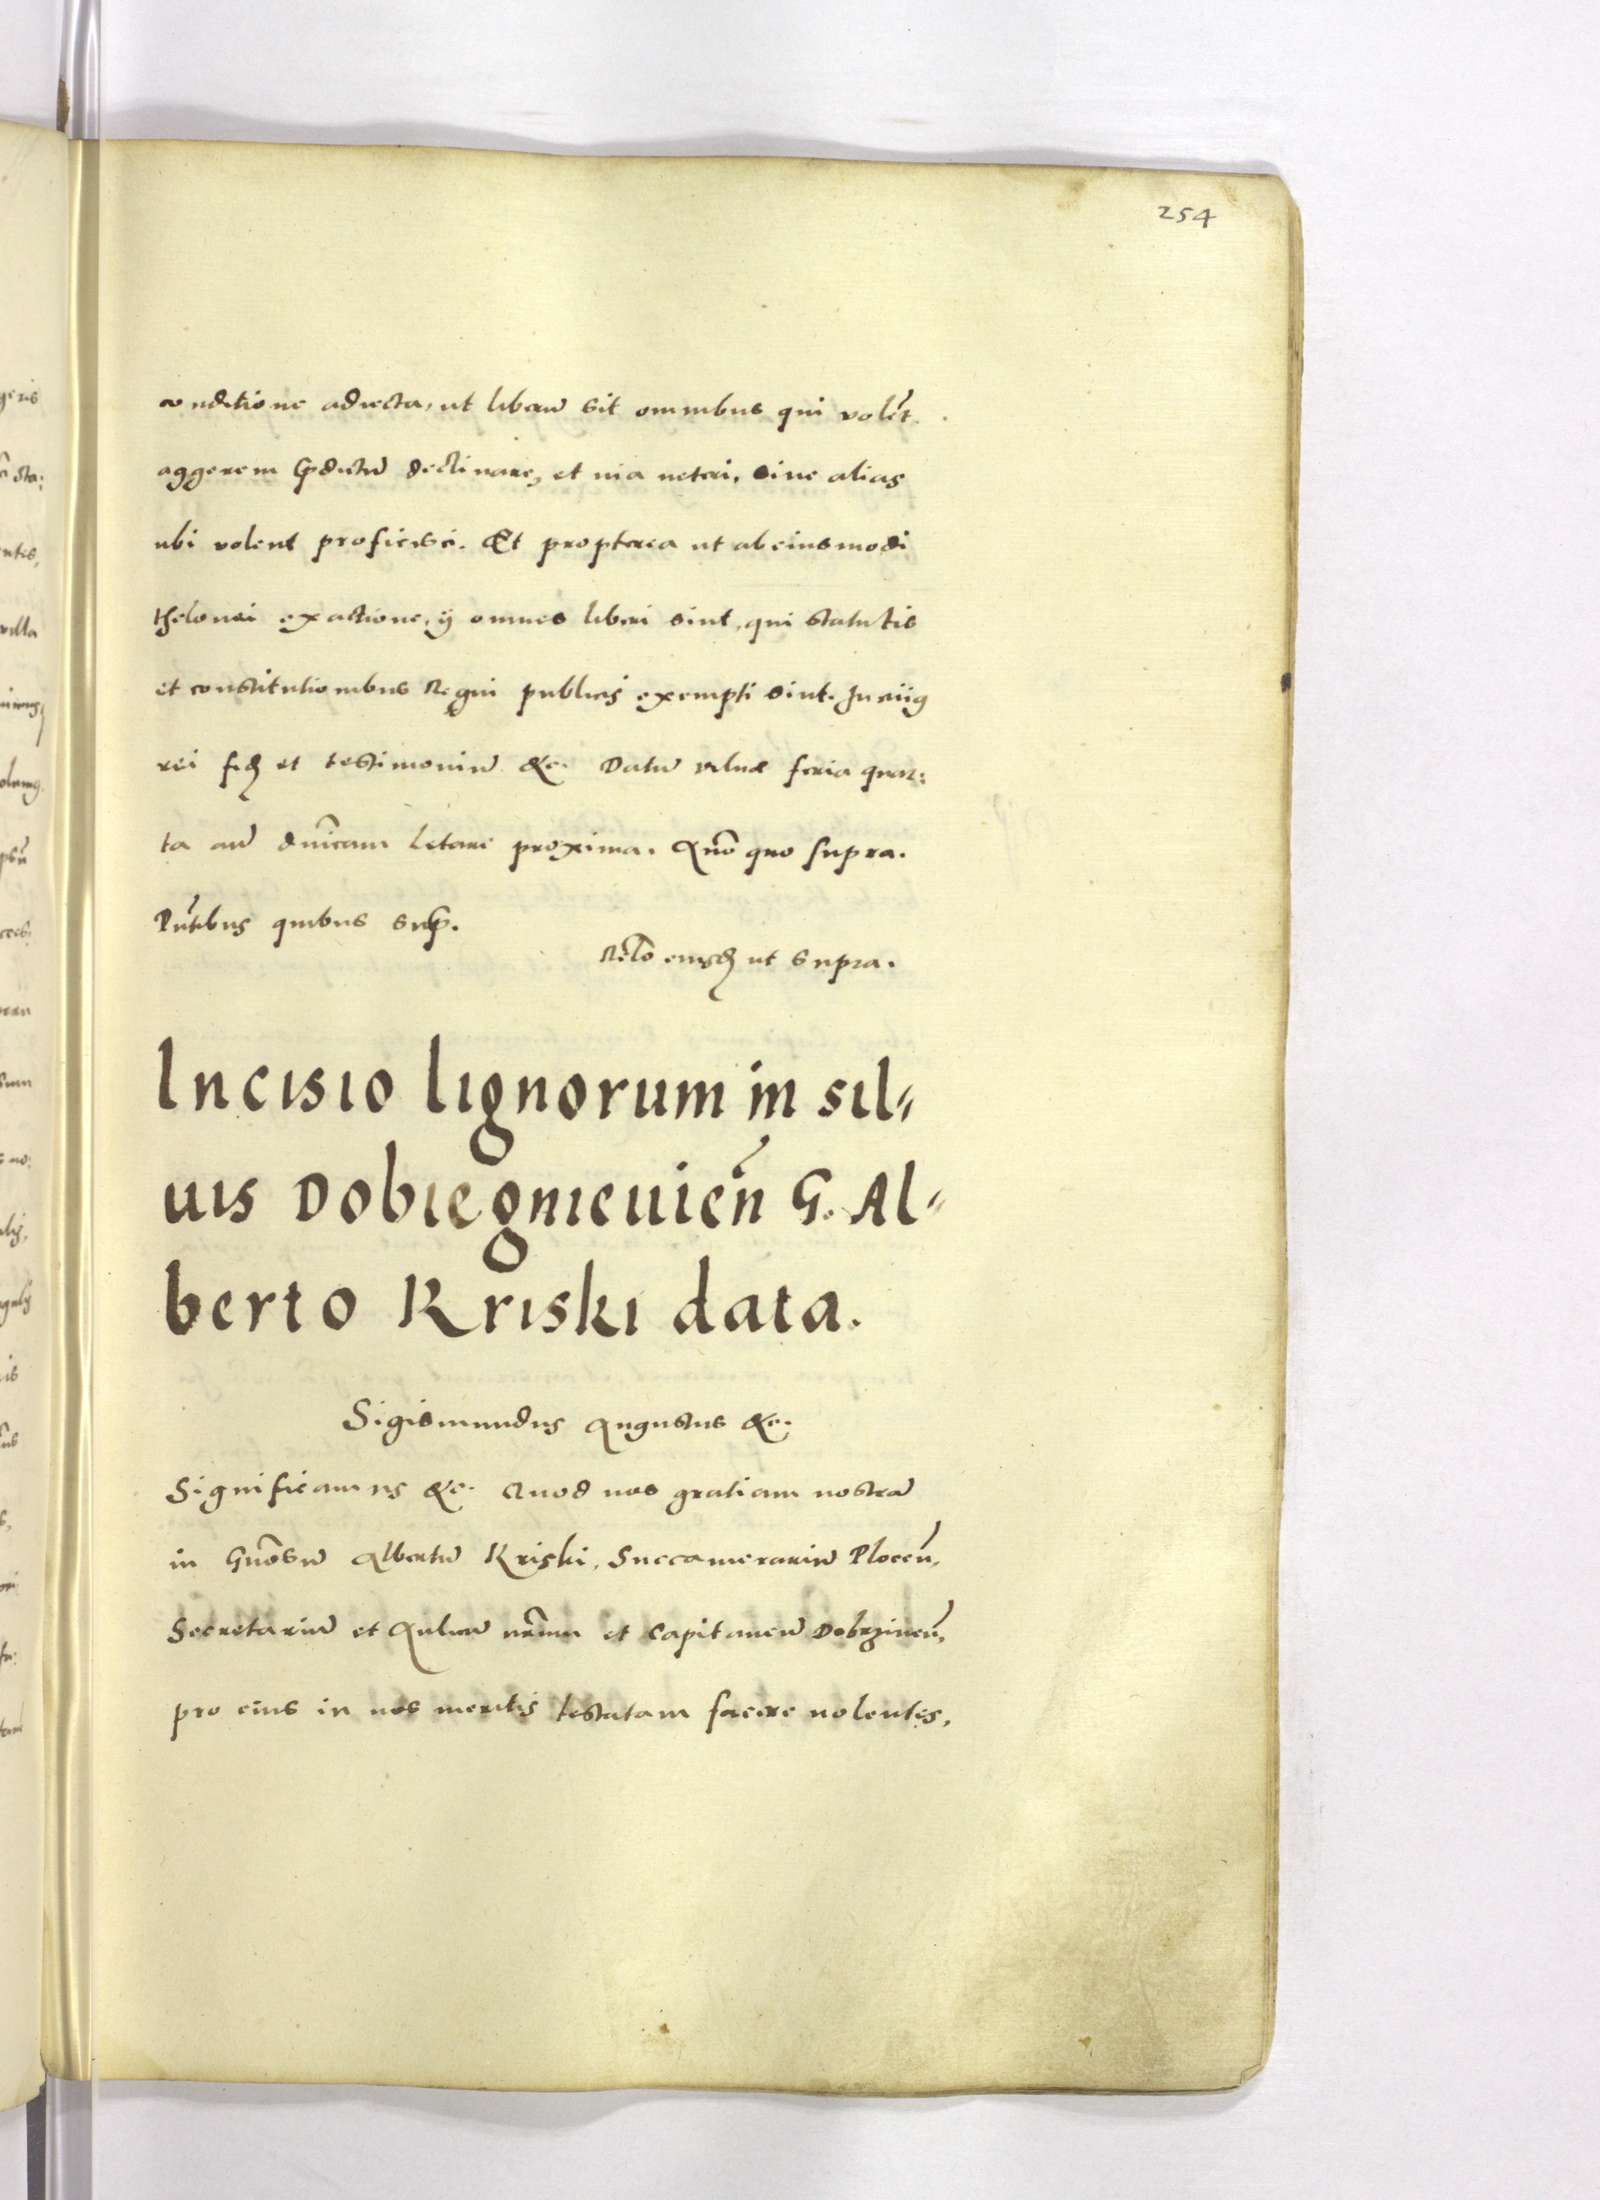 254
conditione adiecta, ut liberũ sit omnibus qui volẽt
aggerem p̃dictũ declinare, et uia ueteri, siue alias
ubi volent proficisci. Et propterea ut ab eiusmodi
thelonei exactione, ÿ omnes liberi sint, qui statutis
et constitutionibus Regni publicis exempti sint. In cuiꝰ
rei fidẽ et testimoniũ &c. Datũ Vilnæ feria quar:
ta añ dñicam Letare proxima. Añò quo supra.
Pñtibus quibus sup̃.
Rel̃o eiusdẽ ut supra.
Incisio lignorum in sil=
uis Dobiegnieuieñ G. Al=
berto Kriski data.
Sigismundus Augustus &c.
Significamus &c. Quod nos gratiam nostrã
in Gñosũ Albertũ Kriski, Succamerariũ Ploceñ,
Secretariũ et Aulicũ nr̃um et Capitaneũ Dobrzineñ,
pro eius in nos meritis testatam facere uolentes,